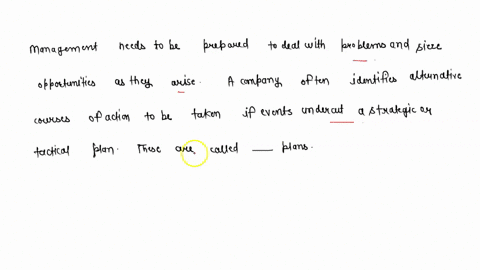 Management needs to be prepared to deal with problems and sieze
opportunities as they arise. A company often identifies alternative
courses of action to be taken if events undercut a strategic or
tactical plan. These are called ___ plans.